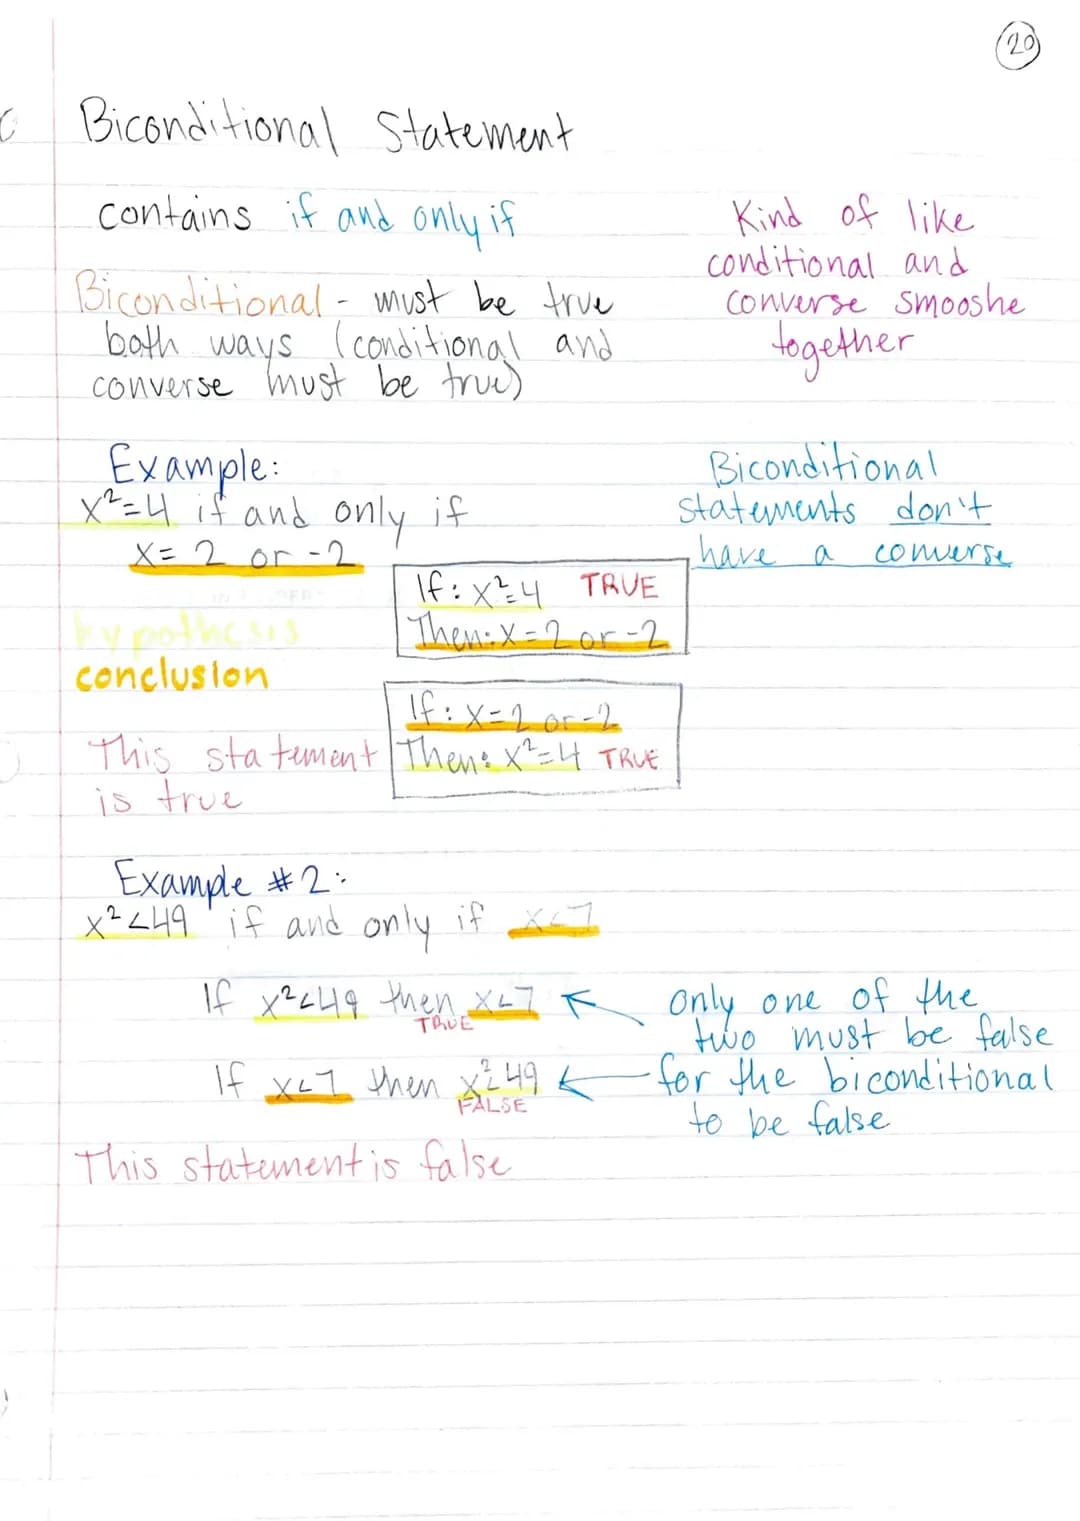 20
Biconditional Statement
contains if and only if
Biconditional - must be true
both ways (conditional and
converse must be true)
Kind of like
conditional and
converse smooshe
together
Example:
x²=4 if and only if
x= 2 or -2
hypothesis
conclusion
This statement
is true
If: x²=4 TRUE
Then: x=2 or -2
If: x=2 or -2
Then: x²=4 TRUE
Biconditional
statements don't
have a converse
Example #2:
x²<49 if and only if x<7
If x²<49 then x<7
TRUE
If x<7 then x²<49
FALSE
only one of the
two must be false
for the biconditional
to be false
This statement is false